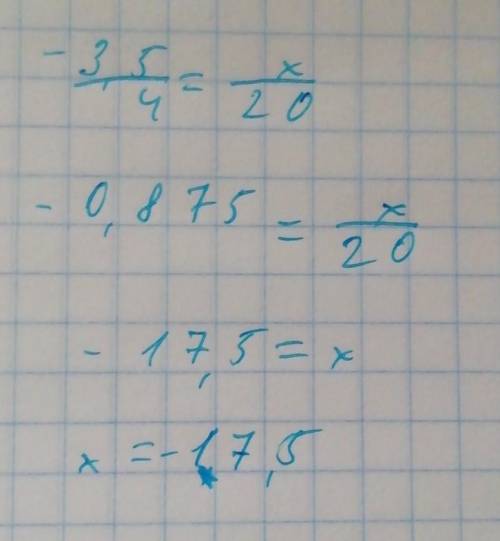 -3,5/4 = x/20
-0,875 = x/20
-17,5 = x
x = -17,5